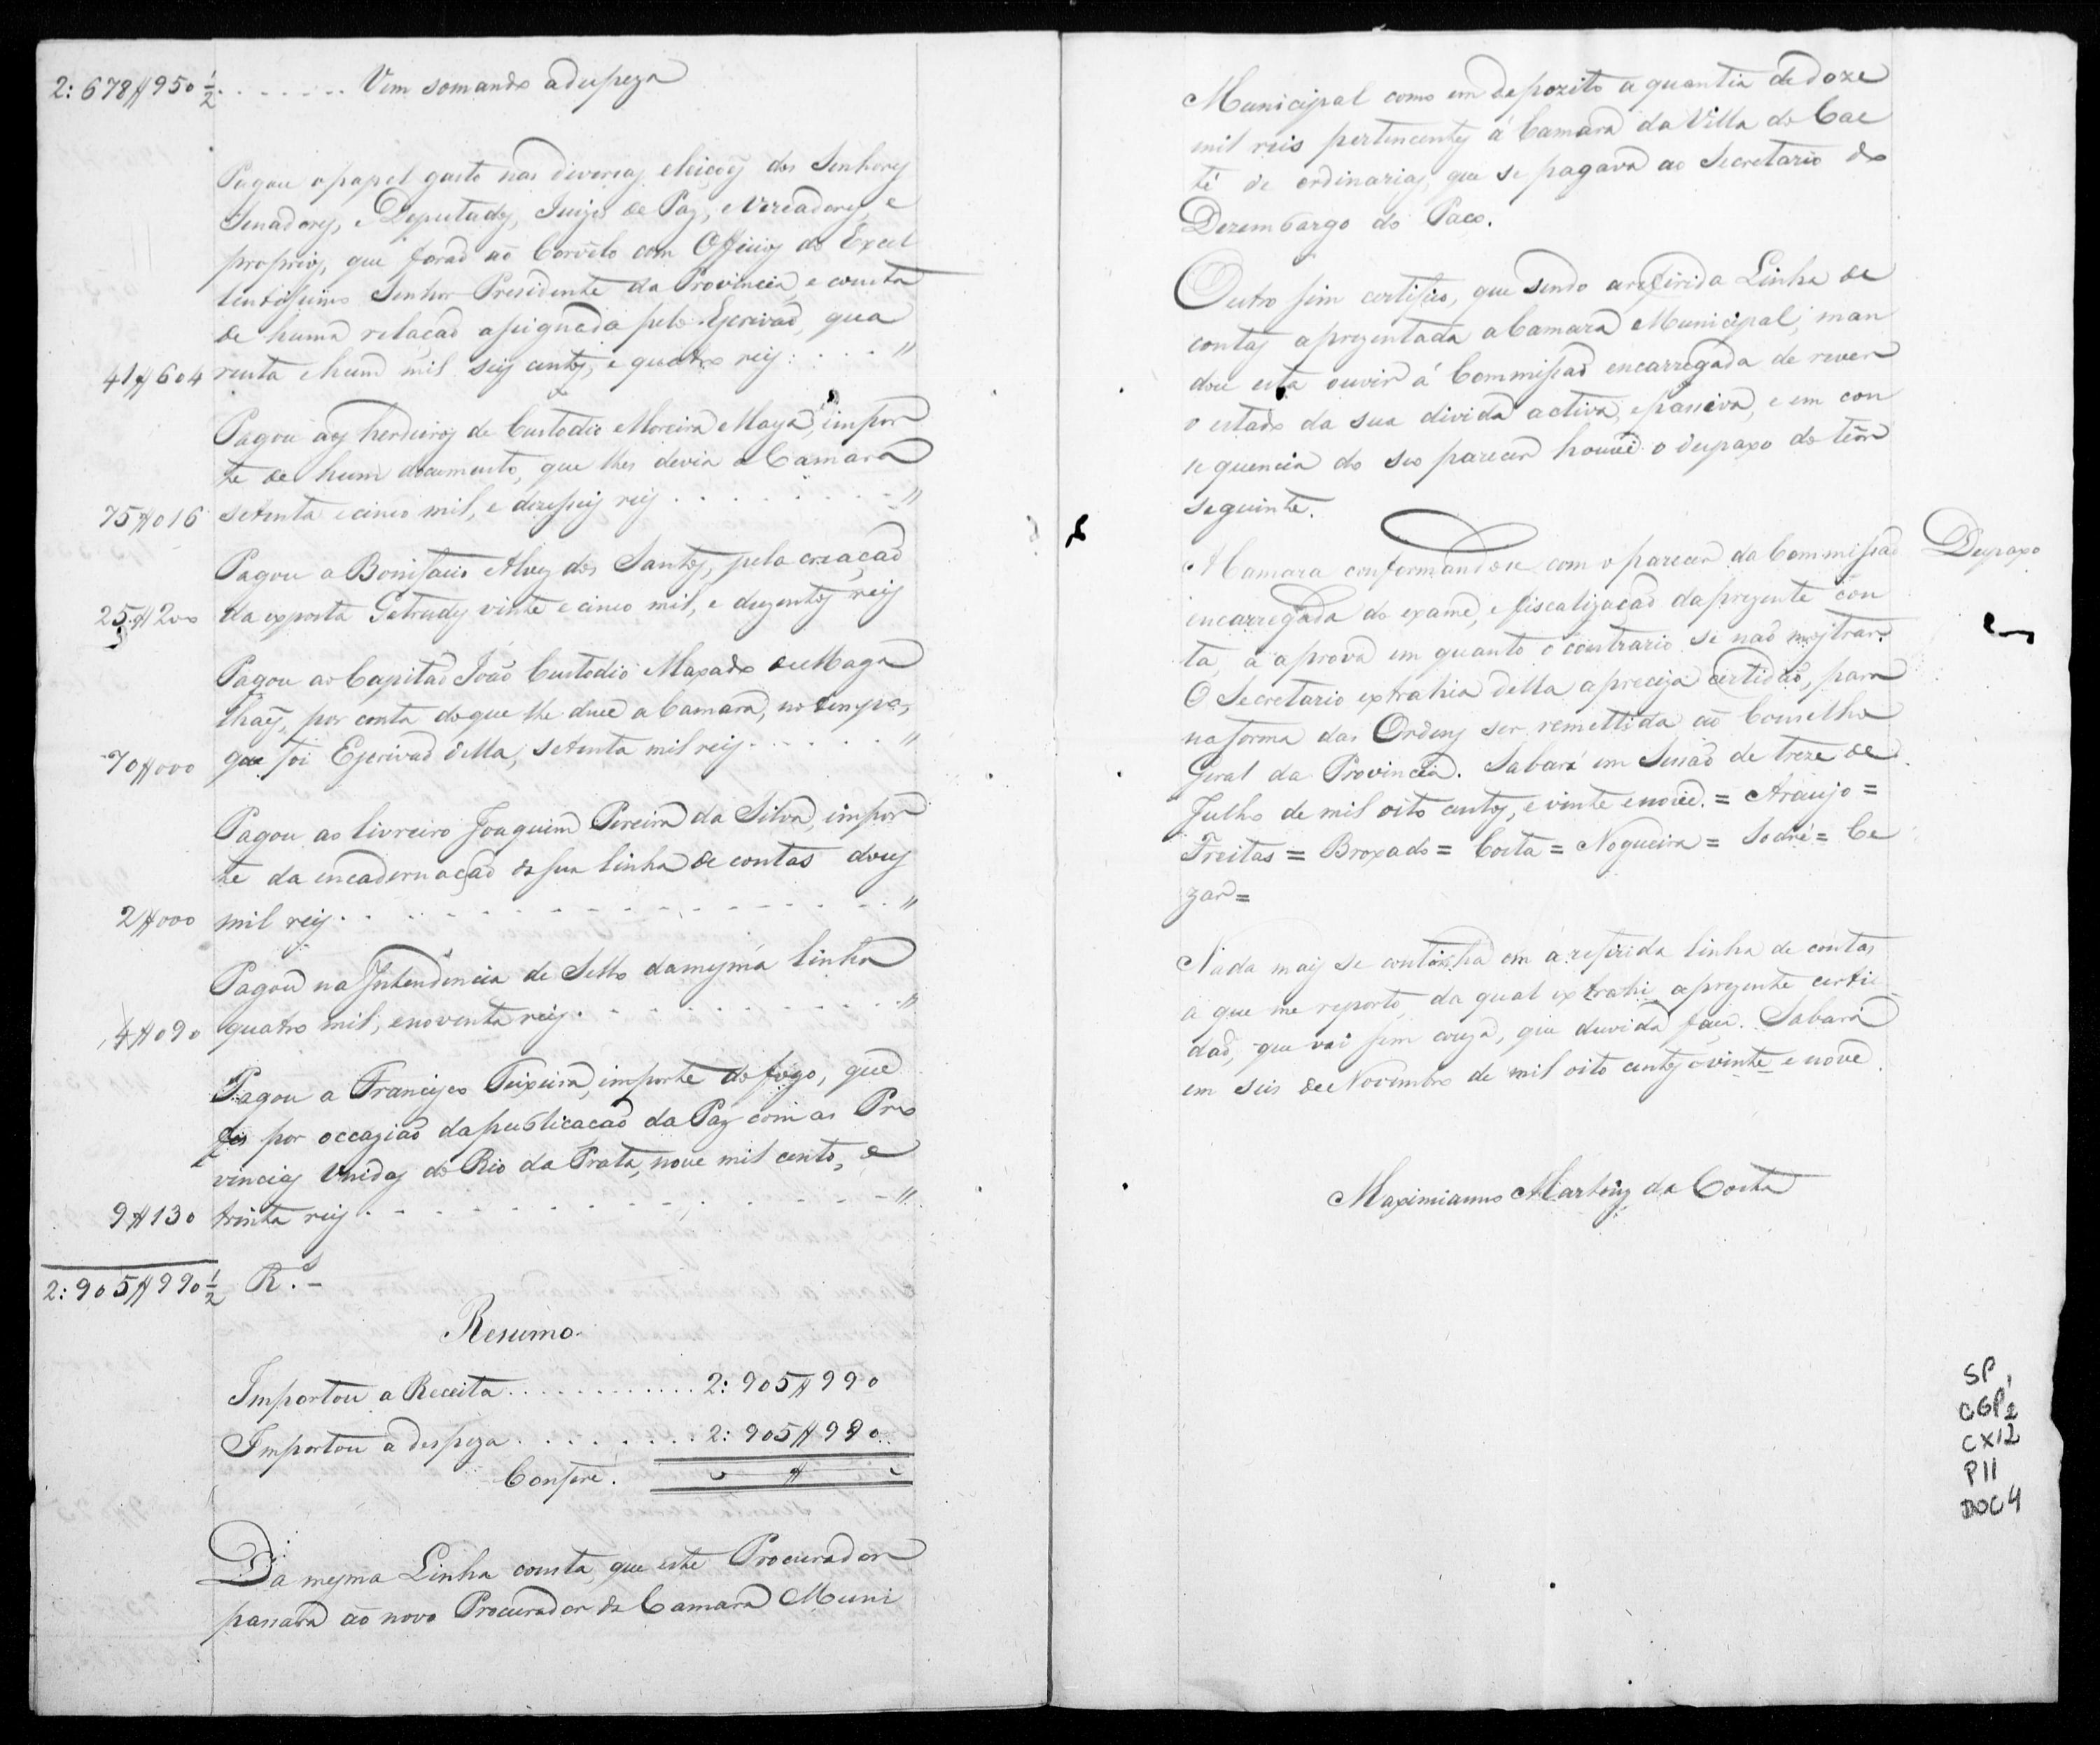 2:678$950½ ....... Vem somando adespeza
Pagou o papel gasto nas diversas eleiçoẽs dos Senhores
Senadores, e Deputados, Juizes de Paz, e Vereadores, e
proprios, que foraõ ao Corvêlo com Officios do Excel
lentissimo Senhor Presidente da Provincia, e consta
de huma relaçaõ assignada pelo Escrivaõ, qua
41$604 renta e hum mil seis centos, e quatro reis: . . . . "
Pagou aos herdeiros de Custodio Moreira Maya, impor
te de hum documento, que lhes devia a Camara
75$016 setenta e cinco mil, e dezesseis reis . . . . . . . . "
Pagou a Bonifacio Alves dos Santos, pela creaçaõ
25$200 da exposta Getrudes vinte e cinco mil, e duzentos reis
Pagou ao Capitaõ Joaõ Custodio Maxado de Maga
lhaẽs, por conta do que lhe deve a Camara, no tempo,
70$000 que foi Escrivaõ della, setenta mil reis . . . . . . "
Pagou ao livreiro Joaquim Pereira da Silva, impor
te da encadernaçaõ da sua linha de contas dous
2$000 mil reis . . . . . . . . . . . . . . . . "
Pagou na Intendencia de Sello da mesma linha
4$090 quatro mil, e noventa reis . . . . . . . . . . "
Pagou a Francisco Teixeira, importe do fogo, que
fes por occaziaõ da publicacaõ da Paz com as Pro
vincias Unidas do Rio da Prata, nove mil cento, e
9$130 trinta reis . . . . . . . . . . . . . . . "
2:905$990½ R.s –
Resumo.
Importou a Receita ............ 2:905$990
Importou a despeza . . . . . . . . . 2:905$990
Confere. $
Da mesma Linha consta, que este Procurador
passara aõ novo Procurador da Camara Muni
Municipal como em depozito a quantia de doze
mil reis pertencentes á Camara da Villa do Cae
té de ordinarias, que se pagava ao Secretario do
Dezembargo do Paço.
Outro sim certifico, que sendo a referida Linha de
contas aprezentada a Camara Municipal, man
dou esta ouvir á Commissaõ encarregada de rever
o estado da sua divida activa, e passiva, e em con
sequencia do seo parecer houve o despaxo do teôr
seguinte.
A Camara conformandose com o parecer da Commissaõ Despaxo
encarregada do exame, e fiscalizaçaõ da prezente con
ta, a aprova em quanto o contrario se naõ mostrar.
O Secretario extrahia della a preciza certidaõ, para
na forma das Ordens ser remettida aõ Conselho
Geral da Provincia. Sabará em Sessaõ de treze de
Julho de mil oito centos, e vinte e nove. = Araujo =
Freitas = Broxado = Costa = Nogueira = Sodré = Ce
zar =
Nada mais se continha em a referida linha de contas
a que me reporto, da qual extrahi a prezente certi
daõ, que vai sem couza, que duvida faça. Sabará
em seis de Novembro de mil oito centos e vinte e nove.
Maximianno Martins da Costa
SP,
CGP2
CX12
P11
DOC4